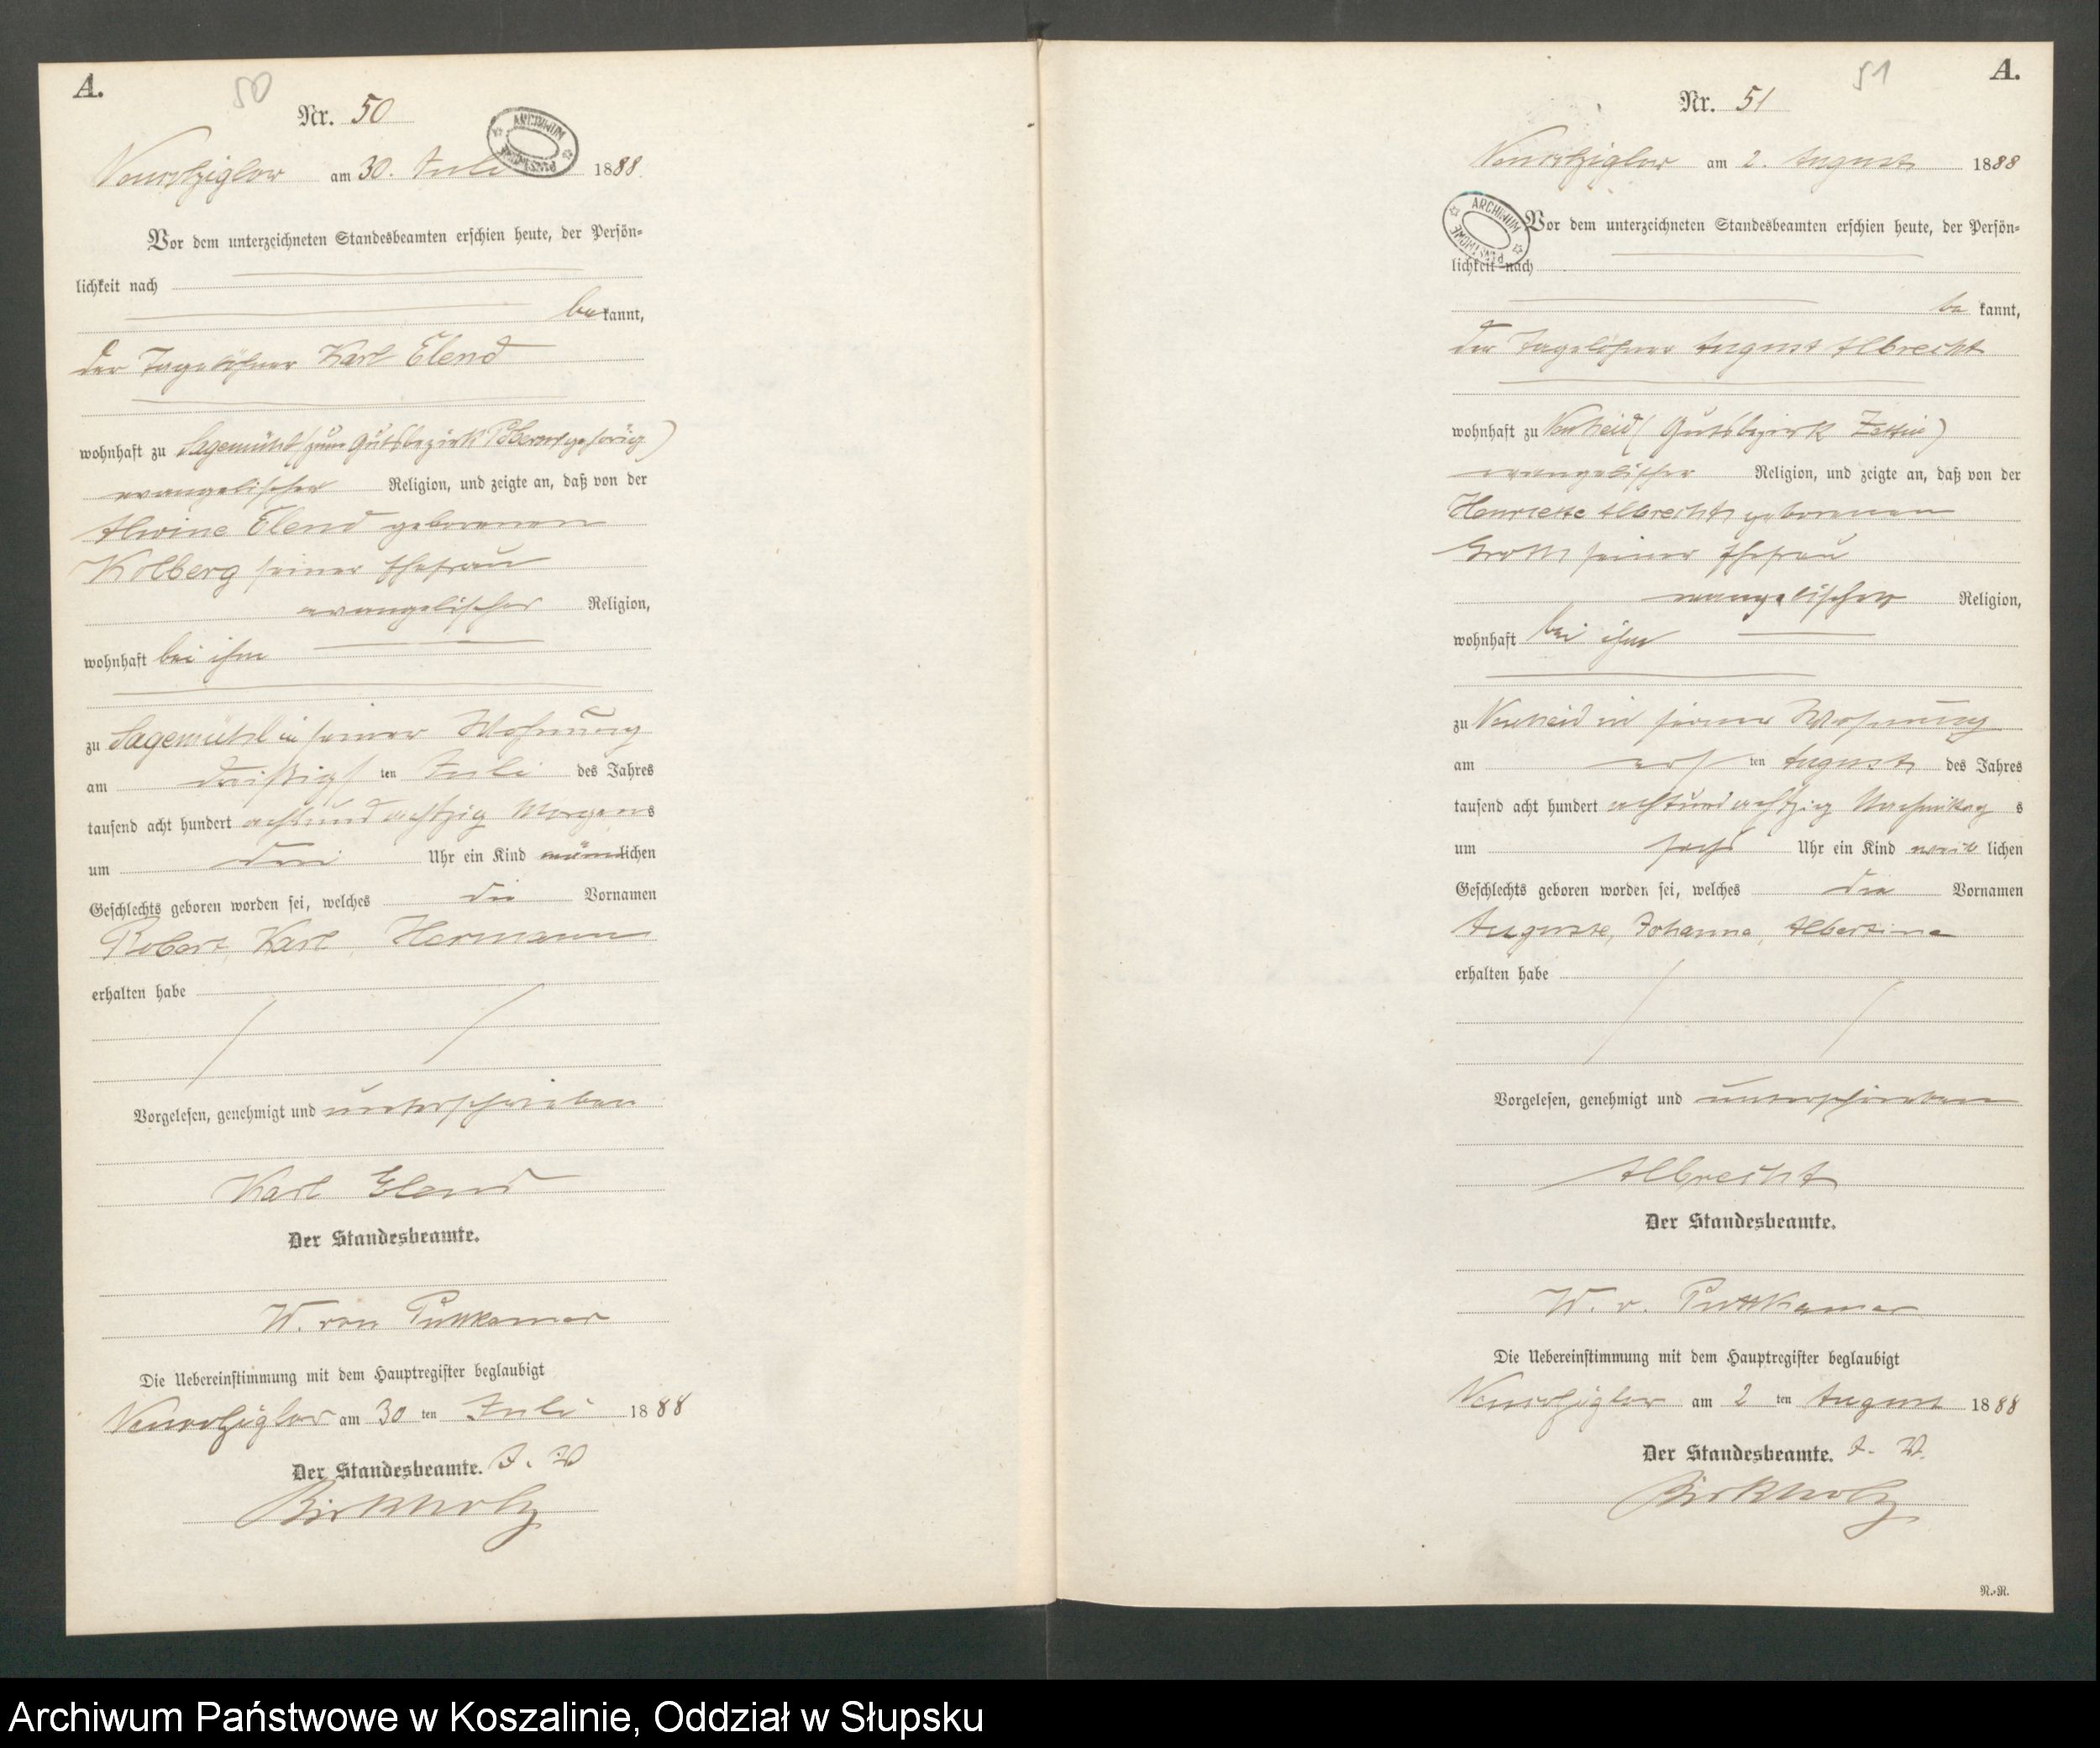 A.
50
Nr. 50
ARCHIWUM PAŃSTWOWE
am 30. Juli 1888
Vor dem unterzeichneten Standesbeamten erschien heute, der Persön-
lichkeit nach
bekannt,
der Tagelöhner Karl Elend
wohnhaft zu Sagemühl (zum Gutsbezirk gehörig)
evangelischer Religion, und zeigte an, daß von der
Alwine Elend geborenen
Kolberg seiner Ehefrau
evangelischer Religion,
wohnhaft bei ihm
zu Sagemühl in seiner Wohnung
am dreißigsten Juli des Jahres
tausend acht hundert achtundachtzig Morgens
um drei Uhr ein Kind männlichen
Geschlechts geboren worden sei, welches die Vornamen
Robert, Karl, Hermann
erhalten habe
Vorgelesen, genehmigt und unterschrieben
Karl Elend
Der Standesbeamte.
W. von Puttkamer
Die Uebereinstimmung mit dem Hauptregister beglaubigt
am 30 ten Juli 1888
Der Standesbeamte. I. V.
Birkholz
51
A.
Nr. 51
am 2. August 1888
ARCHIWUM PAŃSTWOWE
Vor dem unterzeichneten Standesbeamten erschien heute, der Persön-
lichkeit nach
bekannt,
der Tagelöhner August Albrecht
wohnhaft zu (Gutsbezirk Zettin)
evangelischer Religion, und zeigte an, daß von der
Henriette Albrecht geborenen
Groth seiner Ehefrau
evangelischer Religion,
wohnhaft bei ihm
zu in seiner Wohnung
am ersten August des Jahres
tausend acht hundert achtundachtzig Nachmittags
um sechs Uhr ein Kind weiblichen
Geschlechts geboren worden sei, welches die Vornamen
Auguste, Johanna, Albertine
erhalten habe
Vorgelesen, genehmigt und unterschrieben
Albrecht
Der Standesbeamte.
W. v. Puttkamer
Die Uebereinstimmung mit dem Hauptregister beglaubigt
am 2 ten August 1888
Der Standesbeamte. I. V.
Birkholz
N.-R.
Archiwum Państwowe w Koszalinie, Oddział w Słupsku